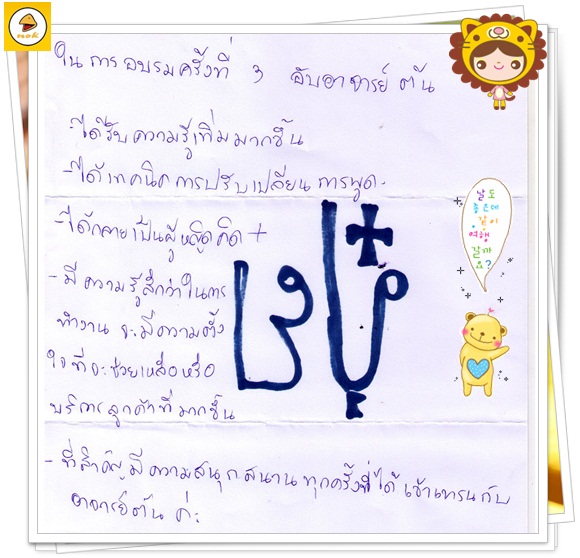 nok
ใน การ อบรมครั้งที่ 3 กับอาจารย์ ต้น
- ได้รับ ความรู้ เพิ่มมากขึ้น
- ได้ เทคนิค การปรับเปลี่ยน การพูด.
- ได้กลายเป็นผู้หญิงคิด +
- มี ความรู้สึกว่าในการ
ทำงาน จะมีความตั้ง
ใจ ที่จะช่วยเหลือหรือ
บริการ ลูกค้าที่ มากขึ้น
- ที่สำคัญ มีความสนุกสนาน ทุกครั้งที่ได้ เข้าเทรนกับ
อาจารย์ต้น ค่ะ
날도
좋은데
같이
여행
갈까
요?